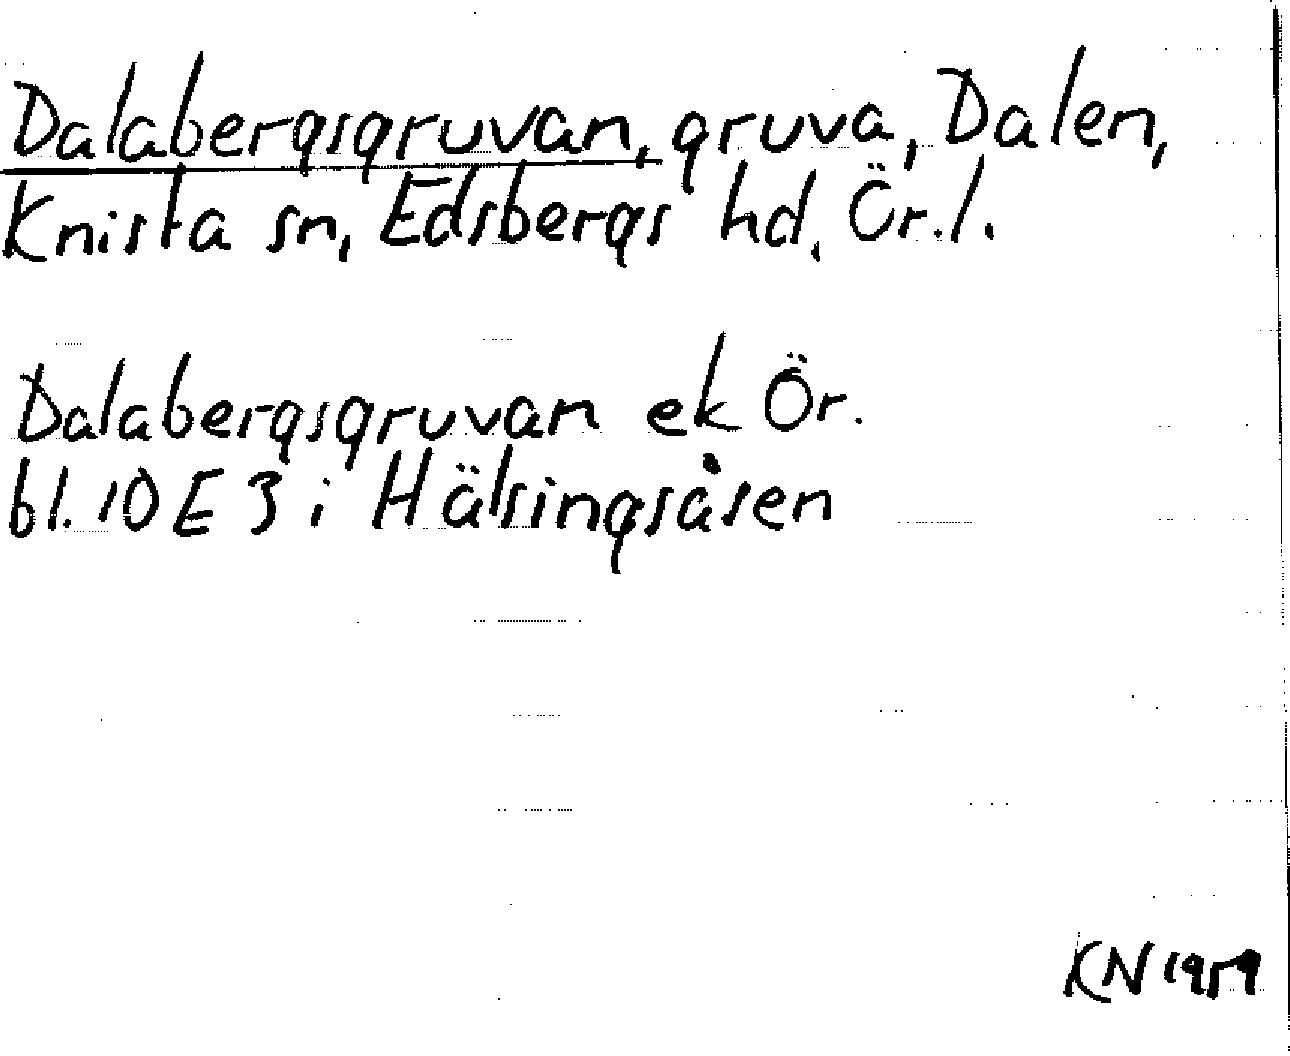 Dalabergsgruvan, gruva, Dalen,
Knista sn, Edsbergs hd, Ör.l.
Dalabergsgruvan ek Ör.
bl. 10 E 3 i Hälsingsåsen
KN 1959